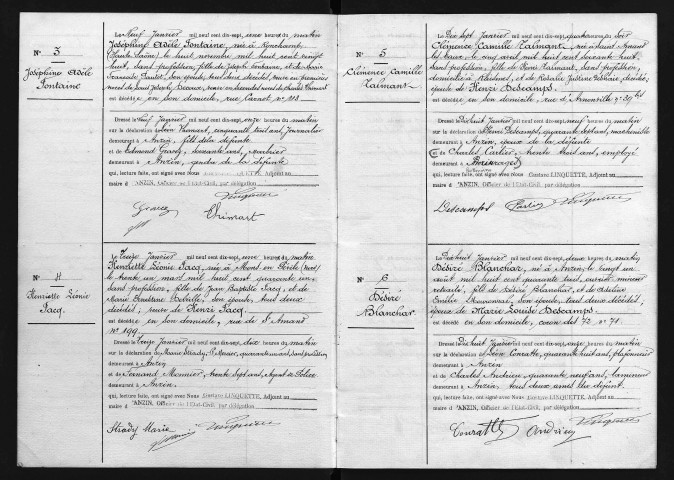 N° 3
Joséphine Adèle
Fontaine
Le Neuf Janvier mil neuf cent dix-sept, onze heures du matin
Joséphine Adèle Fontaine, née à Ronchamp
(Haute Saône) le huit novembre mil huit cent vingt
huit, sans profession, fille de Joseph Fontaine, et de Marie
son épouse, tous deux décédés, veuve en premières
noces de
est décédée en son domicile, rue Carnot n° 118
Dressé le Neuf Janvier mil neuf cent dix-sept, onze heures du matin
sur la déclaration de Léon Thimart, cinquante huit ans, journalier
demeurant à Anzin, fils de la défunte
et de Edmond Gravez, soixante ans,
demeurant à Anzin, gendre de la défunte
qui, lecture faite, ont signé avec Nous Gustave LINQUETTE, Adjoint au
maire d'ANZIN, Officier de l'Etat-Civil, par délégation
Gravez
Thimart
N° 4
Henriette Léonie
Jacq.
Le Treize Janvier mil neuf cent dix-sept, une heure du matin
Henriette Léonie Jacq, née à
le trente un mars mil huit cent quarante un
sans profession, fille de Jean Baptiste Jacq, et de
Marie son épouse, tous deux
décédés; veuve de Henri Jacq.
est décédée en son domicile, rue de St Amand
n° 199
Dressé le Treize Janvier mil neuf cent dix-sept, dix heures du matin
sur la déclaration de Marie Strady, quarante un ans, sans profession
demeurant à Anzin
et de Fernand Mesmier, trente sept ans, Agent de Police
demeurant à Anzin.
qui, lecture faite, ont signé avec Nous Gustave LINQUETTE, Adjoint au
maire d'ANZIN, Officier de l'Etat-Civil, par délégation
Strady Marie
Linquette
N° 5
Clémence Camille
Talmant
Le Dix sept Janvier mil neuf cent dix-sept, quatre heures du soir
Clémence Camille Talmant, née à Saint Amand
les Eaux, le cinq avril mil huit cent soixante huit,
sans profession, fille de Talmant, sans profession,
domicilié à et de Rosalie Justine décédée,
épouse de Henri Descamps.
est décédée en son domicile, rue d'Amenville n° 39 bis
Dressé le Dix huit Janvier mil neuf cent dix-sept, neuf heures du matin
sur la déclaration de Henri Descamps, quarante sept ans, machiniste
demeurant à Anzin, époux de la défunte
et de Charles Carlier, trente huit ans, employé
demeurant à
qui, lecture faite, ont signé avec Nous Gustave LINQUETTE, Adjoint au
maire d'ANZIN, Officier de l'Etat-Civil, par délégation
Descamps
Carlier
Linquette
N° 6
Désiré
Blanchar
Le Dix huit Janvier mil neuf cent dix-sept, deux heures du matin
Désiré Blanchar, né à Anzin, le vingt un
août mil huit cent quarante huit, ouvrier mineur
retraité, fils de Désiré Blanchar, et de Adeline
Emélie son épouse, tous deux décédés;
époux de Marie Louise Descamps.
est décédé en son domicile, coron des 72 n° 71.
Dressé le Dix huit Janvier mil neuf cent dix-sept, dix heures du matin
sur la déclaration de Léon Conrath, quarante huit ans, plafonneur
demeurant à Anzin
et de Charles Andrieu, quarante neuf ans, lamineur
demeurant à Anzin, tous deux amis du défunt.
qui, lecture faite, ont signé avec Nous Gustave LINQUETTE, Adjoint au
maire d'ANZIN, Officier de l'Etat-Civil, par délégation
Conrath
Andrieu
Linquette